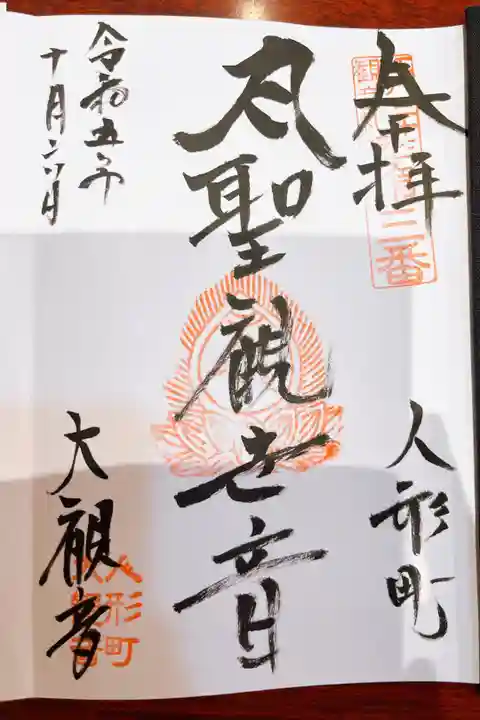 奉拝
三番
人形町
大聖観世音
令和五年
十月六日
大観音
人形町